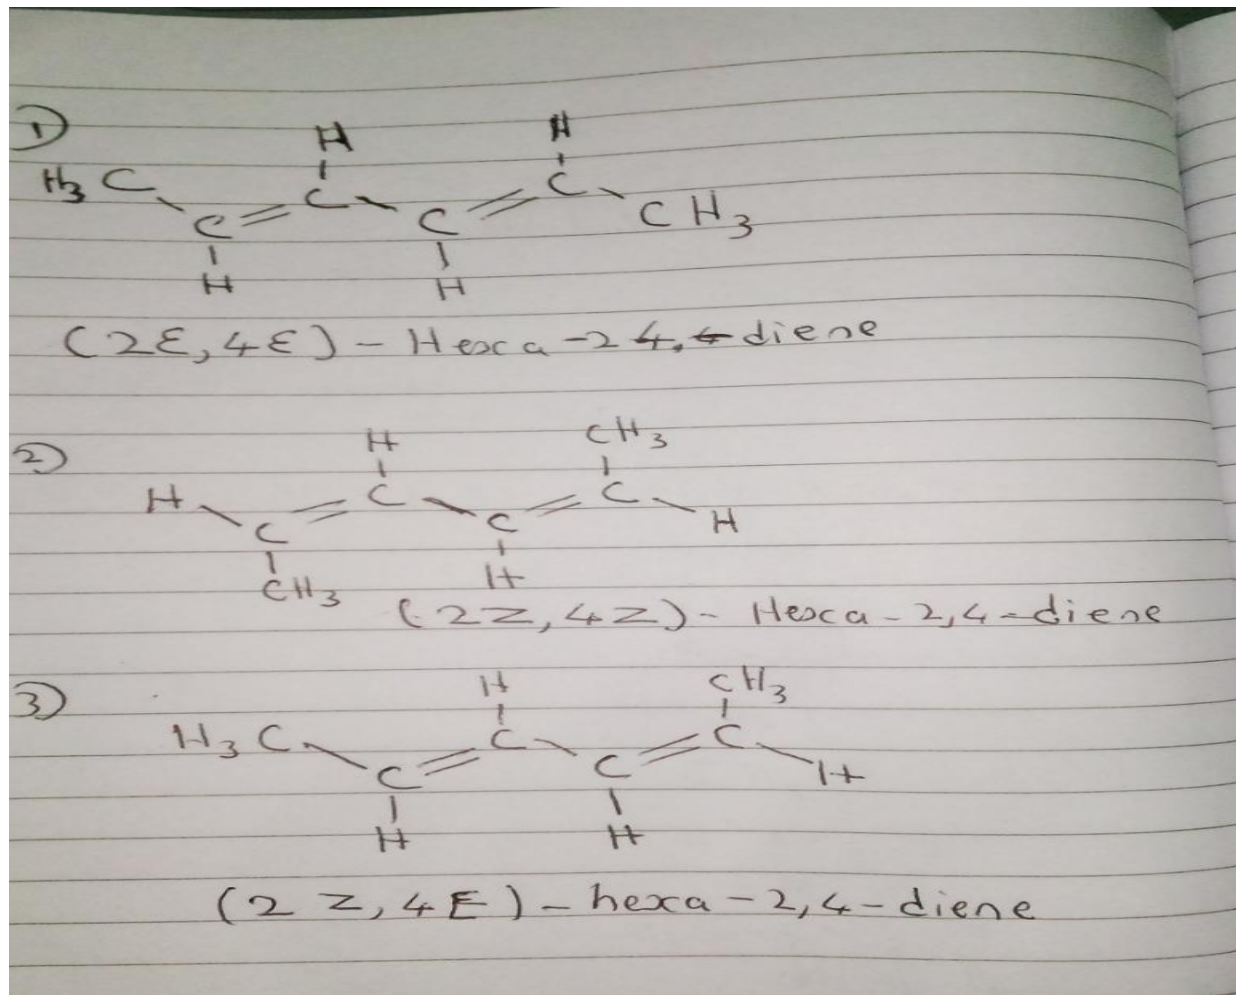 1)
H H
H3 C C C CH3
C C
H H
(2E, 4E) - Hexa -2 4, 4 diene
2)
H CH3
H C C
C C H
CH3 H
(2Z, 4Z) - Hexa - 2,4 - diene
3)
H CH3
H3 C C C
C C H
H H
(2 Z, 4E) - hexa - 2,4 - diene